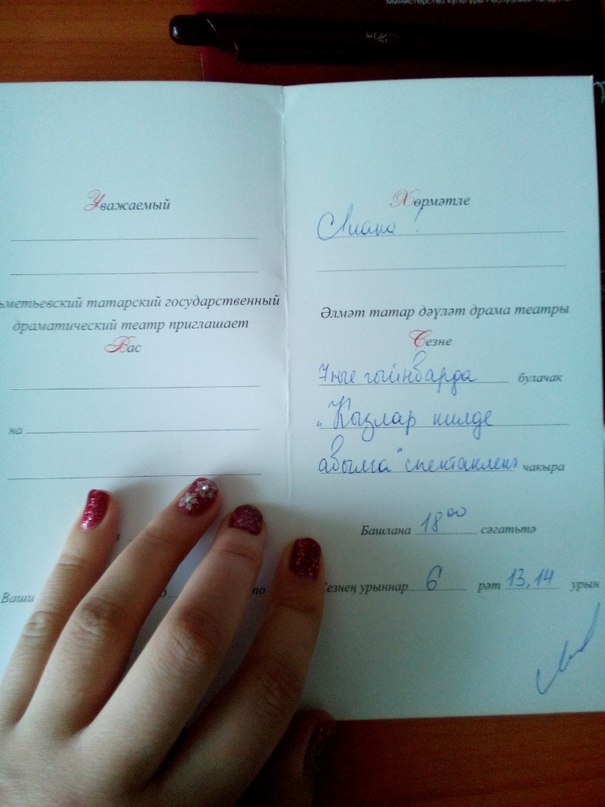 Министерство культуры Республики Татарстан
Уважаемый
ьметьевский татарский государственный
драматический театр приглашает
Вас
на
Ваши
то
Хөрмәтле
Лиана!
Әлмәт татар дәүләт драма театры
Сезне
7нче гыйнварда булачак
"Кызлар килде
авылга" спектакленә чакыра
Башлана 18 00 сәгатьтә
Сезнең урыннар 6 рәт 13, 14 урын